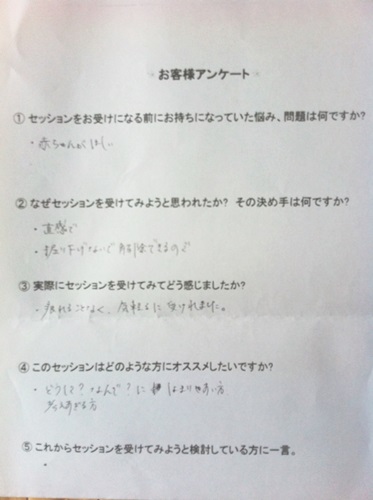 お客様アンケート
① セッションをお受けになる前にお持ちになっていた悩み、問題は何ですか?
・赤ちゃんがほしい
② なぜセッションを受けてみようと思われたか? その決め手は何ですか?
・直感で
・掘り下げないで解除できるので
③ 実際にセッションを受けてみてどう感じましたか?
・疲れることなく、気軽に受けれました。
④ このセッションはどのような方にオススメしたいですか?
・どうして?なんで?にはまりやすい方
⑤ これからセッションを受けてみようと検討している方に一言。
・